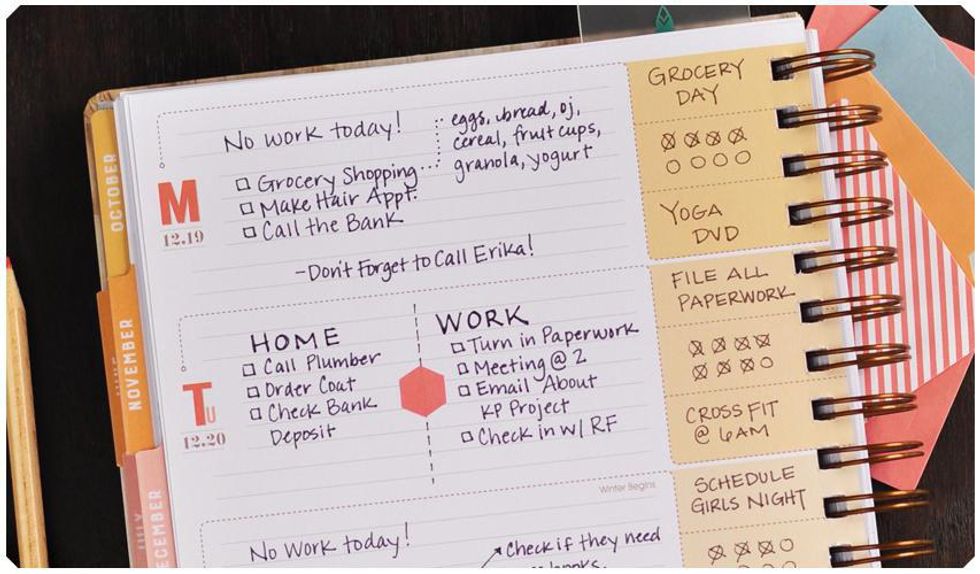 OCTOBER
NOVEMBER
No work today!
eggs, bread, oj,
cereal, fruit cups,
granola, yogurt
M
12.19
Grocery Shopping
Make Hair Appt.
Call the Bank
-Don't Forget to Call Erika!
GROCERY
DAY
YOGA
DVD
TU
12.20
HOME
Call Plumber
Order Coat
Check Bank
Deposit
WORK
Turn in Paperwork
Meeting @ 2
Email About
KP Project
Check in w/ RF
Winter Begins
FILE ALL
PAPERWORK
CROSS FIT
@ 6AM
No Work today!
Check if they need
books.
SCHEDULE
GIRLS NIGHT